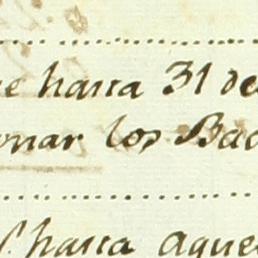 e hasta 31 de
onar los Bac
hasta aque